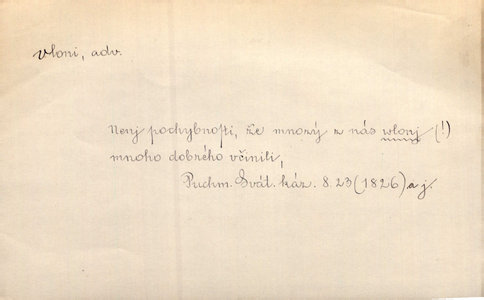 vloni, adv.
Nenj pochybnosti, že mnozý z nás wlonj (!)
mnoho dobrého včinili,
Puchm. Svát. káz. 8. 23 (1826) a j.